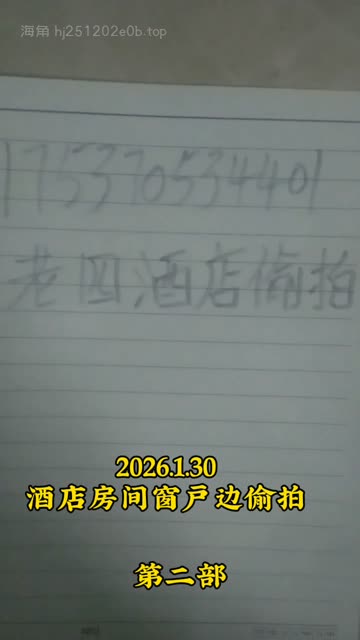 海角 hj251202e0b.top
175370534401
老四,酒店偷拍
2026.1.30
酒店房间窗户边偷拍
第二部